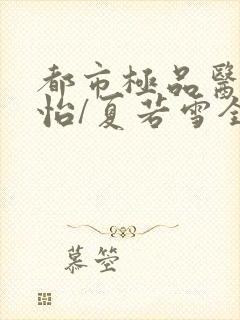 都市極品醫
怡/夏若雪全
慕箜